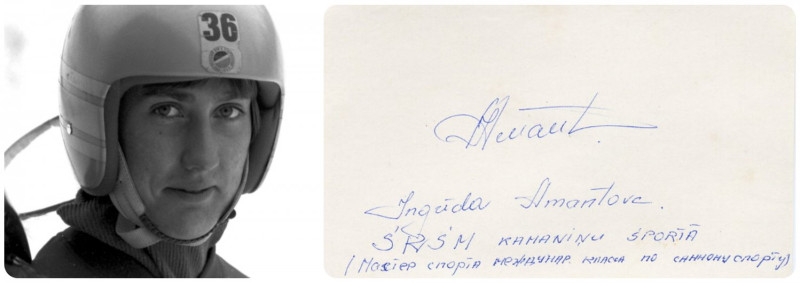 36
Amant
Ingūda Amantova.
SRSM KAMANIŅU SPORTĀ
(Мастер спорта междунар. класса по санному спорту)